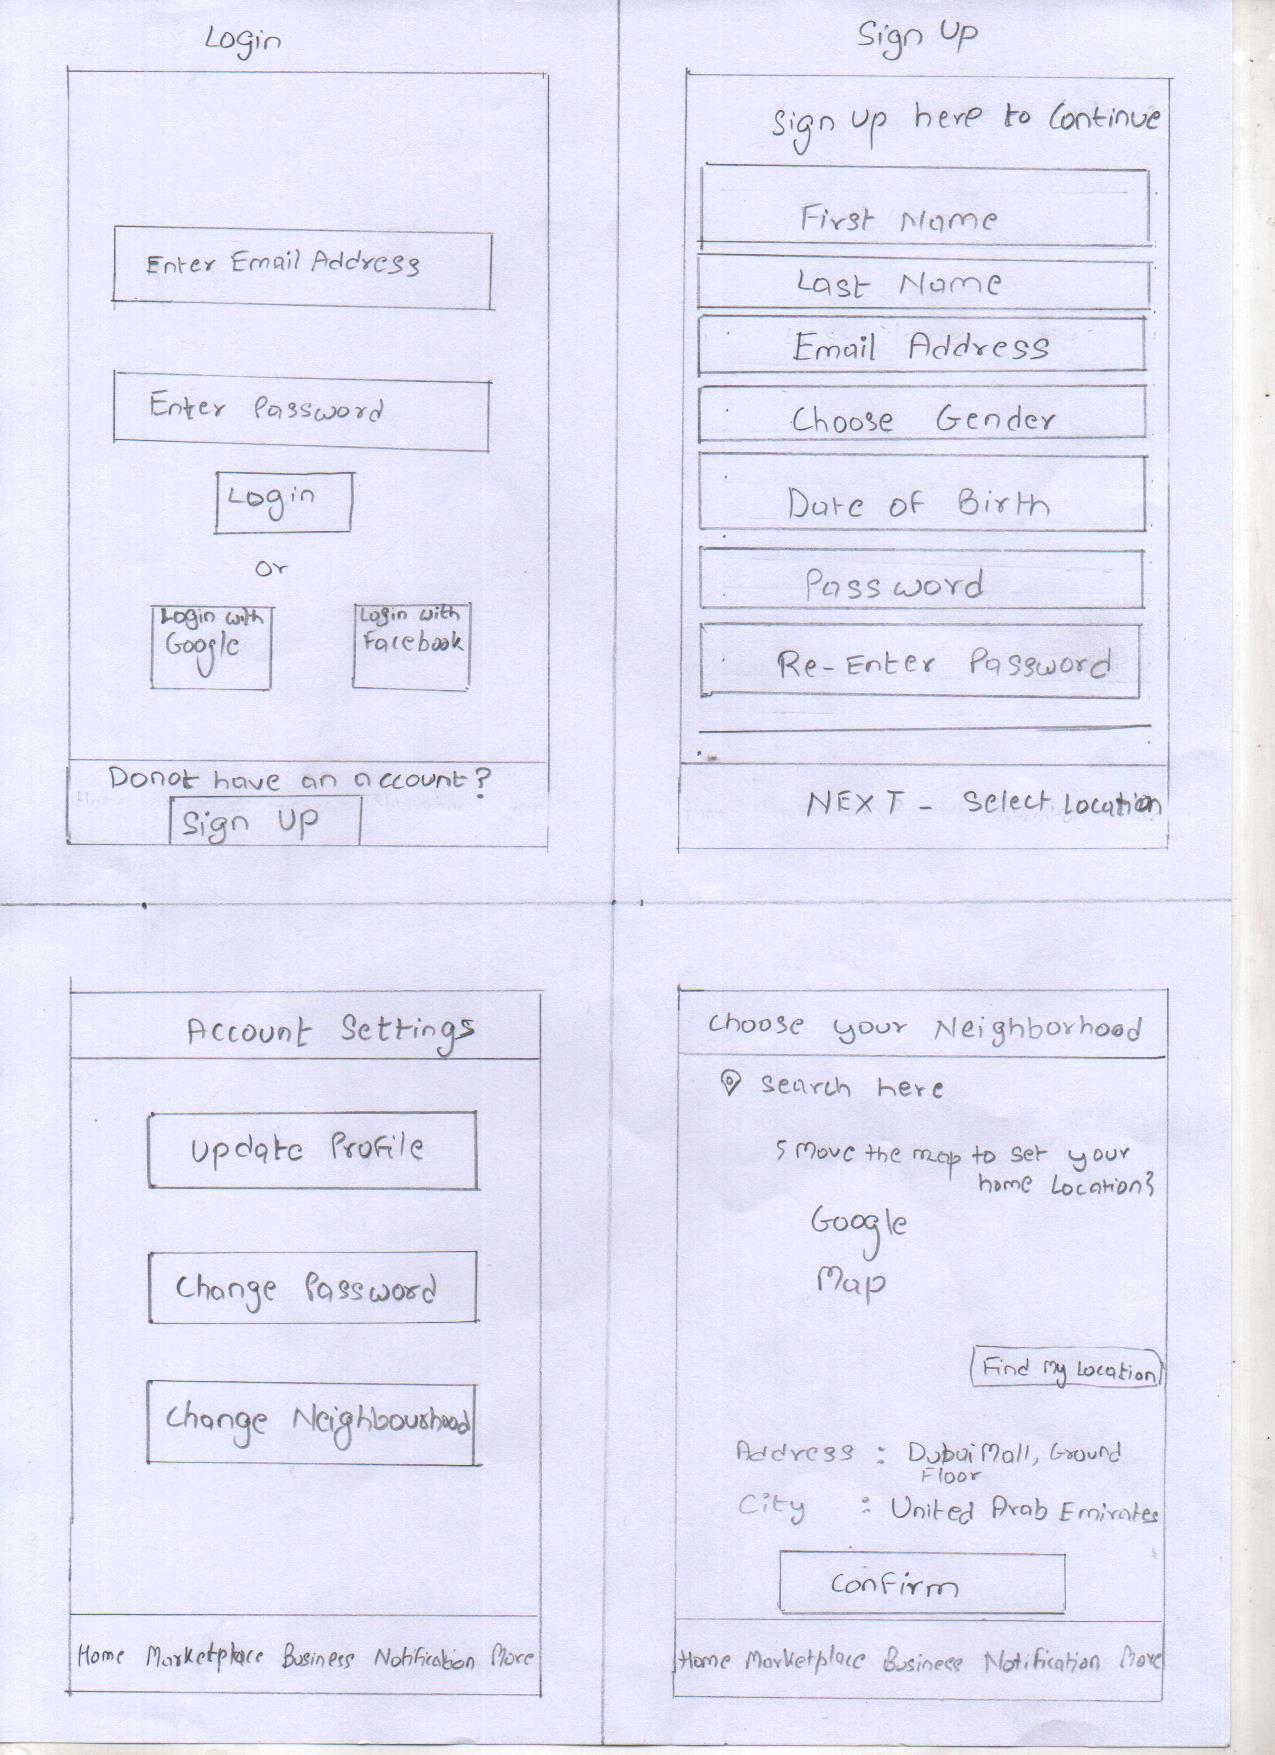 Login
Enter Email Address
Enter Password
Login
or
Login with
Google
Login with
Facebook
Donot have an account?
Sign Up
Sign Up
Sign up here to Continue
First Name
Last Name
Email Address
Choose Gender
Date of Birth
Password
Re-Enter Password
NEXT - Select Location
Account Settings
Update Profile
Change Password
Change Neighbourhood
Home Marketplace Business Notification More
Choose your Neighborhood
Search here
{Move the map to set your
home Location}
Google
Map
Find My Location
Address : Dubai Mall, Ground
Floor
City : United Arab Emirates
Confirm
Home Marketplace Business Notification More